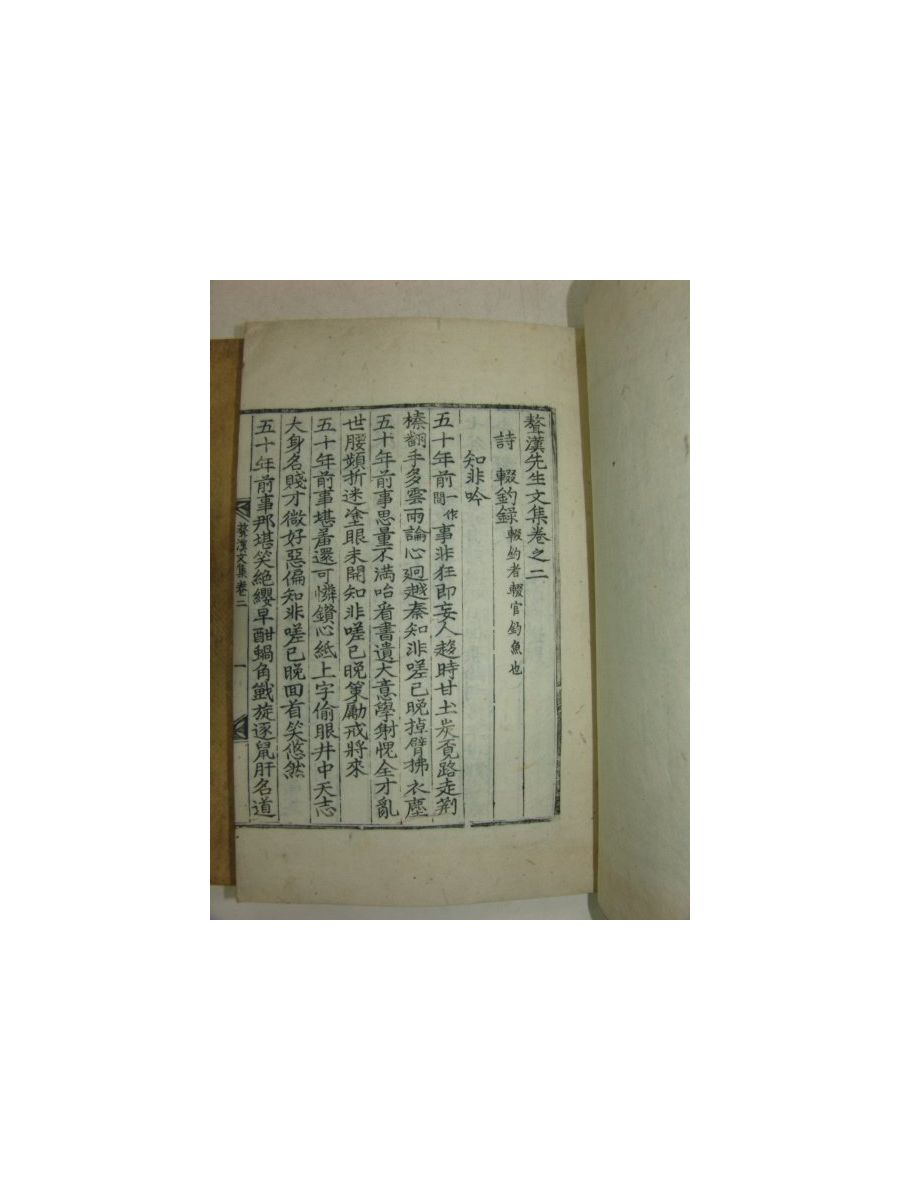 鼇漢先生文集卷之二
詩 輟釣錄 輟釣者輟官釣魚也
知非吟
五十年前一作間事非狂即妄人趍時甘土炭覔路走荊
榛翻手多雲雨論心逈越秦知非嗟已晚掉臂拂衣塵
五十年前事思量不滿咍看書遺大意學射愧全才亂
世腰頻折迷塗眼未開知非嗟已晚策勵戒將來
五十年前事堪羞還可憐鑽心紙上字偷眼井中天志
大身名賤才微好惡偏知非嗟已晚回首笑悠然
五十年前事那堪笑絶纓早酣蝸角戰旋逐鼠肝名道
鼇漢文集卷二 一